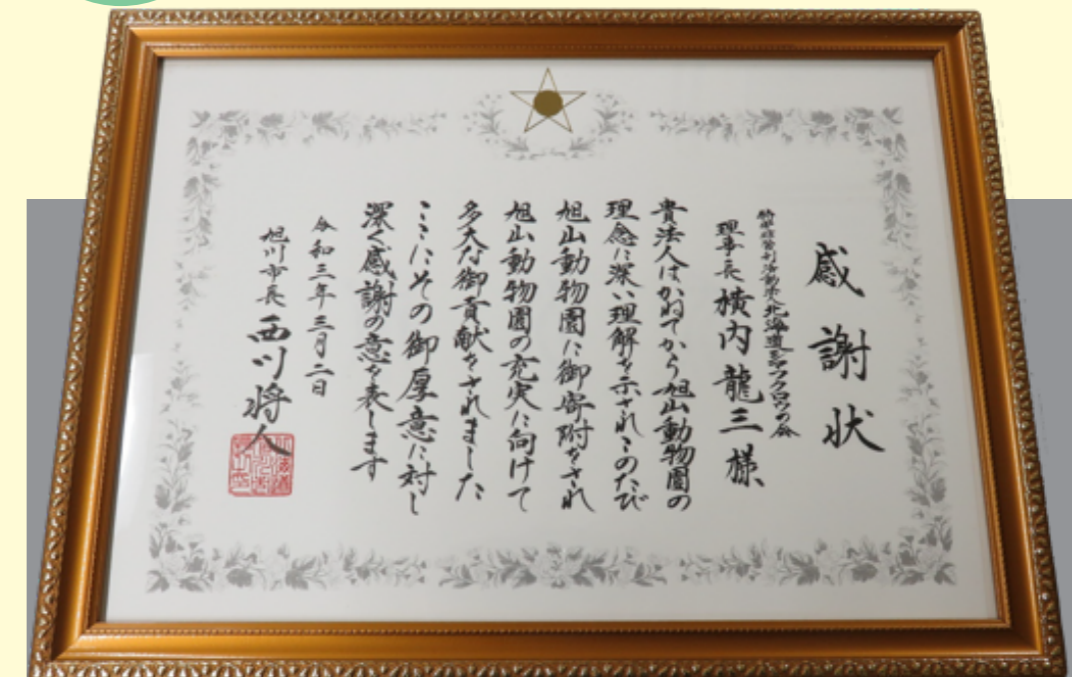 感謝状
特定非営利活動法人北海道シマフクロウの会
理事長 横内龍三様
貴法人はかねてから旭山動物園の
理念に深い理解を示されこのたび
旭山動物園に御寄附をされ
旭山動物園の充実に向けて
多大な御貢献をされました
ここにその御厚意に対し
深く感謝の意を表します
令和三年三月二日
旭川市長 西川将人